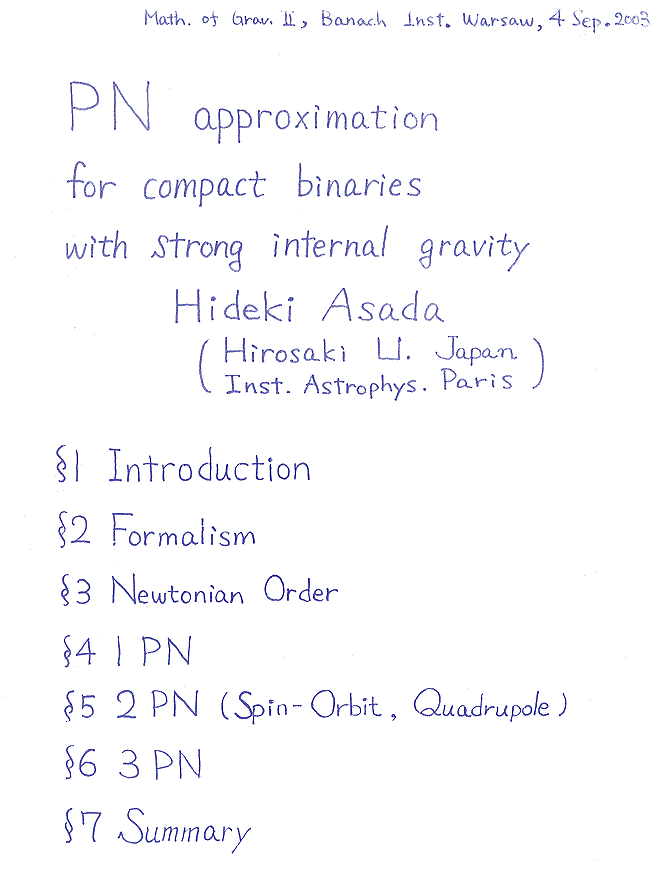 Math. of Grav. II, Banach Inst. Warsaw, 4 Sep. 2003
PN approximation
for compact binaries
with strong internal gravity
Hideki Asada
( Hirosaki U. Japan
Inst. Astrophys. Paris )
§1 Introduction
§2 Formalism
§3 Newtonian Order
§4 1 PN
§5 2 PN (Spin-Orbit, Quadrupole)
§6 3 PN
§7 Summary